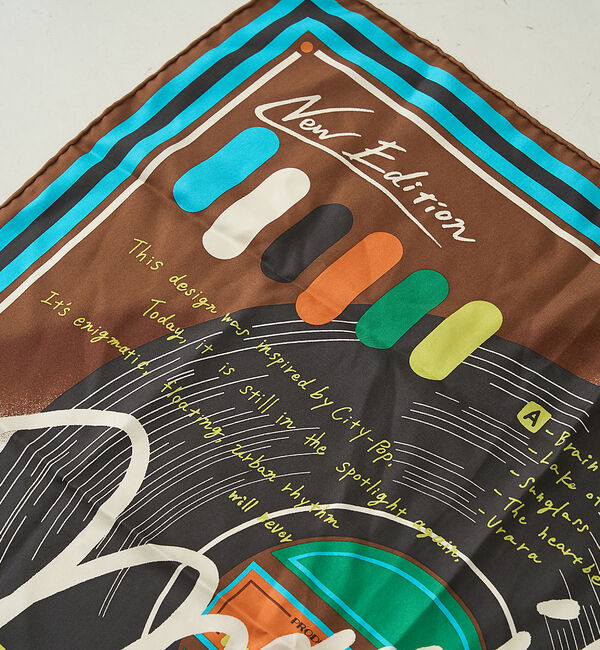 New Edition
This design was inspired by City-Pop.
Today, it is still in the spotlight again,
It's enigmatic, floating, urban rhythm
will never
A
- Brain
- Lake of
- Sunglass
- The heartbe
- Urara
PROD